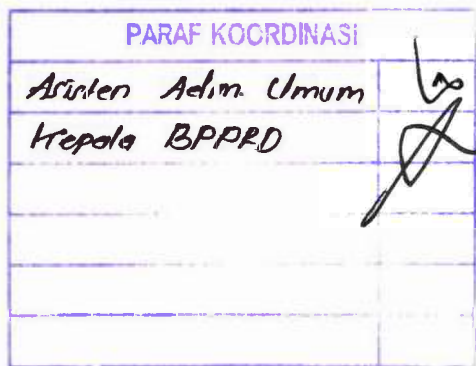 PARAF KOORDINASI
Asisten Adm. Umum
Kepala BPPRD